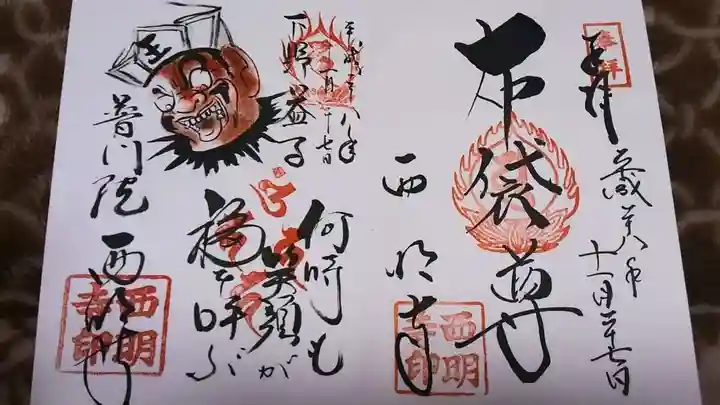 奉拝
平成二十八年
十一月二十七日
布袋尊
西明寺
西明
寺印
平成二十八年
十一月二十七日
下野益子
何時も
笑顔が
福を呼ぶ
王
普門院
西明寺
西明
寺印